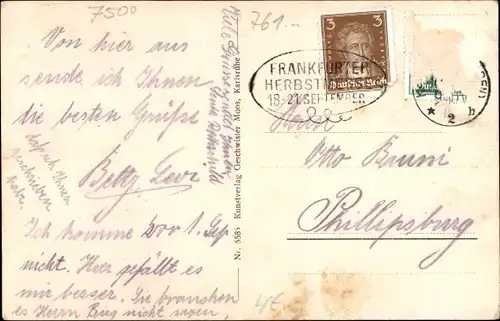 7500
761...
Von hier aus
sende ich Ihnen
die besten Grüße
Betty Levi
daß ich Ihnen
geschrieben
habe.
Ich komme vor 1. Sep
nicht. Hier gefällt es
mir besser. Sie brauchen
es Herrn nicht sagen,
Viele
Nr. 558 Kunstverlag Geschwister Moos, Karlsruhe
3 3
Deutsches Reich
FRANKFURTER
HERBST
18-21. SEPTEMBER
* 2 b
Otto Bruni
Phillipsburg